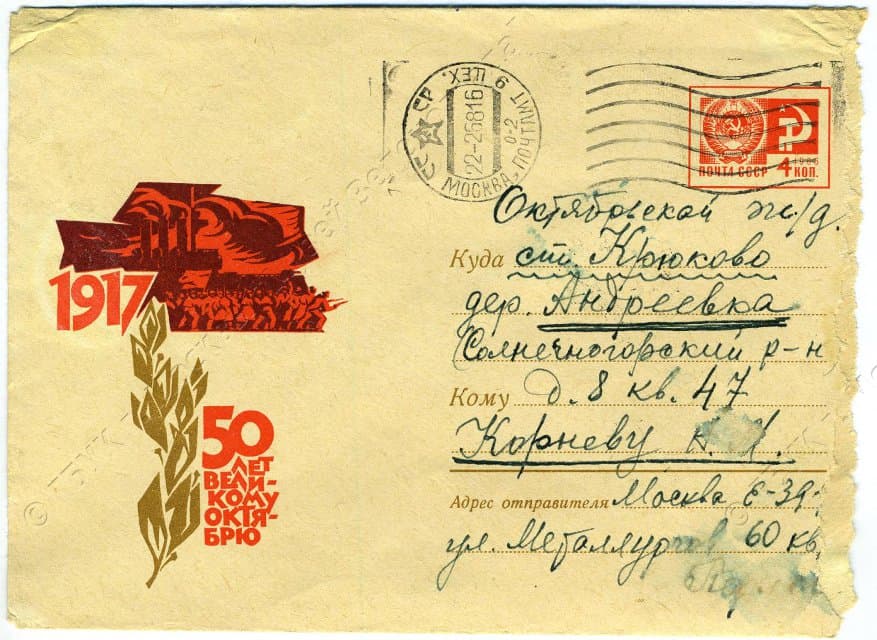 СССР
МОСКВА, ПОЧТАМТ
9 ЦЕХ.
22-26816
0-2
ПОЧТА СССР
1966
4 КОП.
Октябрьской ж/д.
Куда ст. Крюково
дер. Андреевка
Солнечногорский р-н
Кому д. 8 кв. 47
Корневу
Адрес отправителя Москва Е-39
ул. Металлургов 60 кв.
1917
50
ЛЕТ
ВЕЛИ-
КОМУ
ОКТЯ-
БРЮ